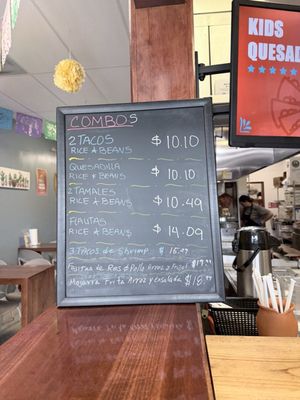 COMBOS
2 TACOS
RICE & BEANS $10.10
QUESADILLA
RICE & BEANS $10.10
2 TAMALES
RICE & BEANS $10.49
FLAUTAS
RICE & BEANS $14.09
3 TACOS de Shrimp $15.49
Fajitas de Res & Pollo Arroz y
Mojarra Frita Arroz y ensalada $18.
KIDS
QUESAD